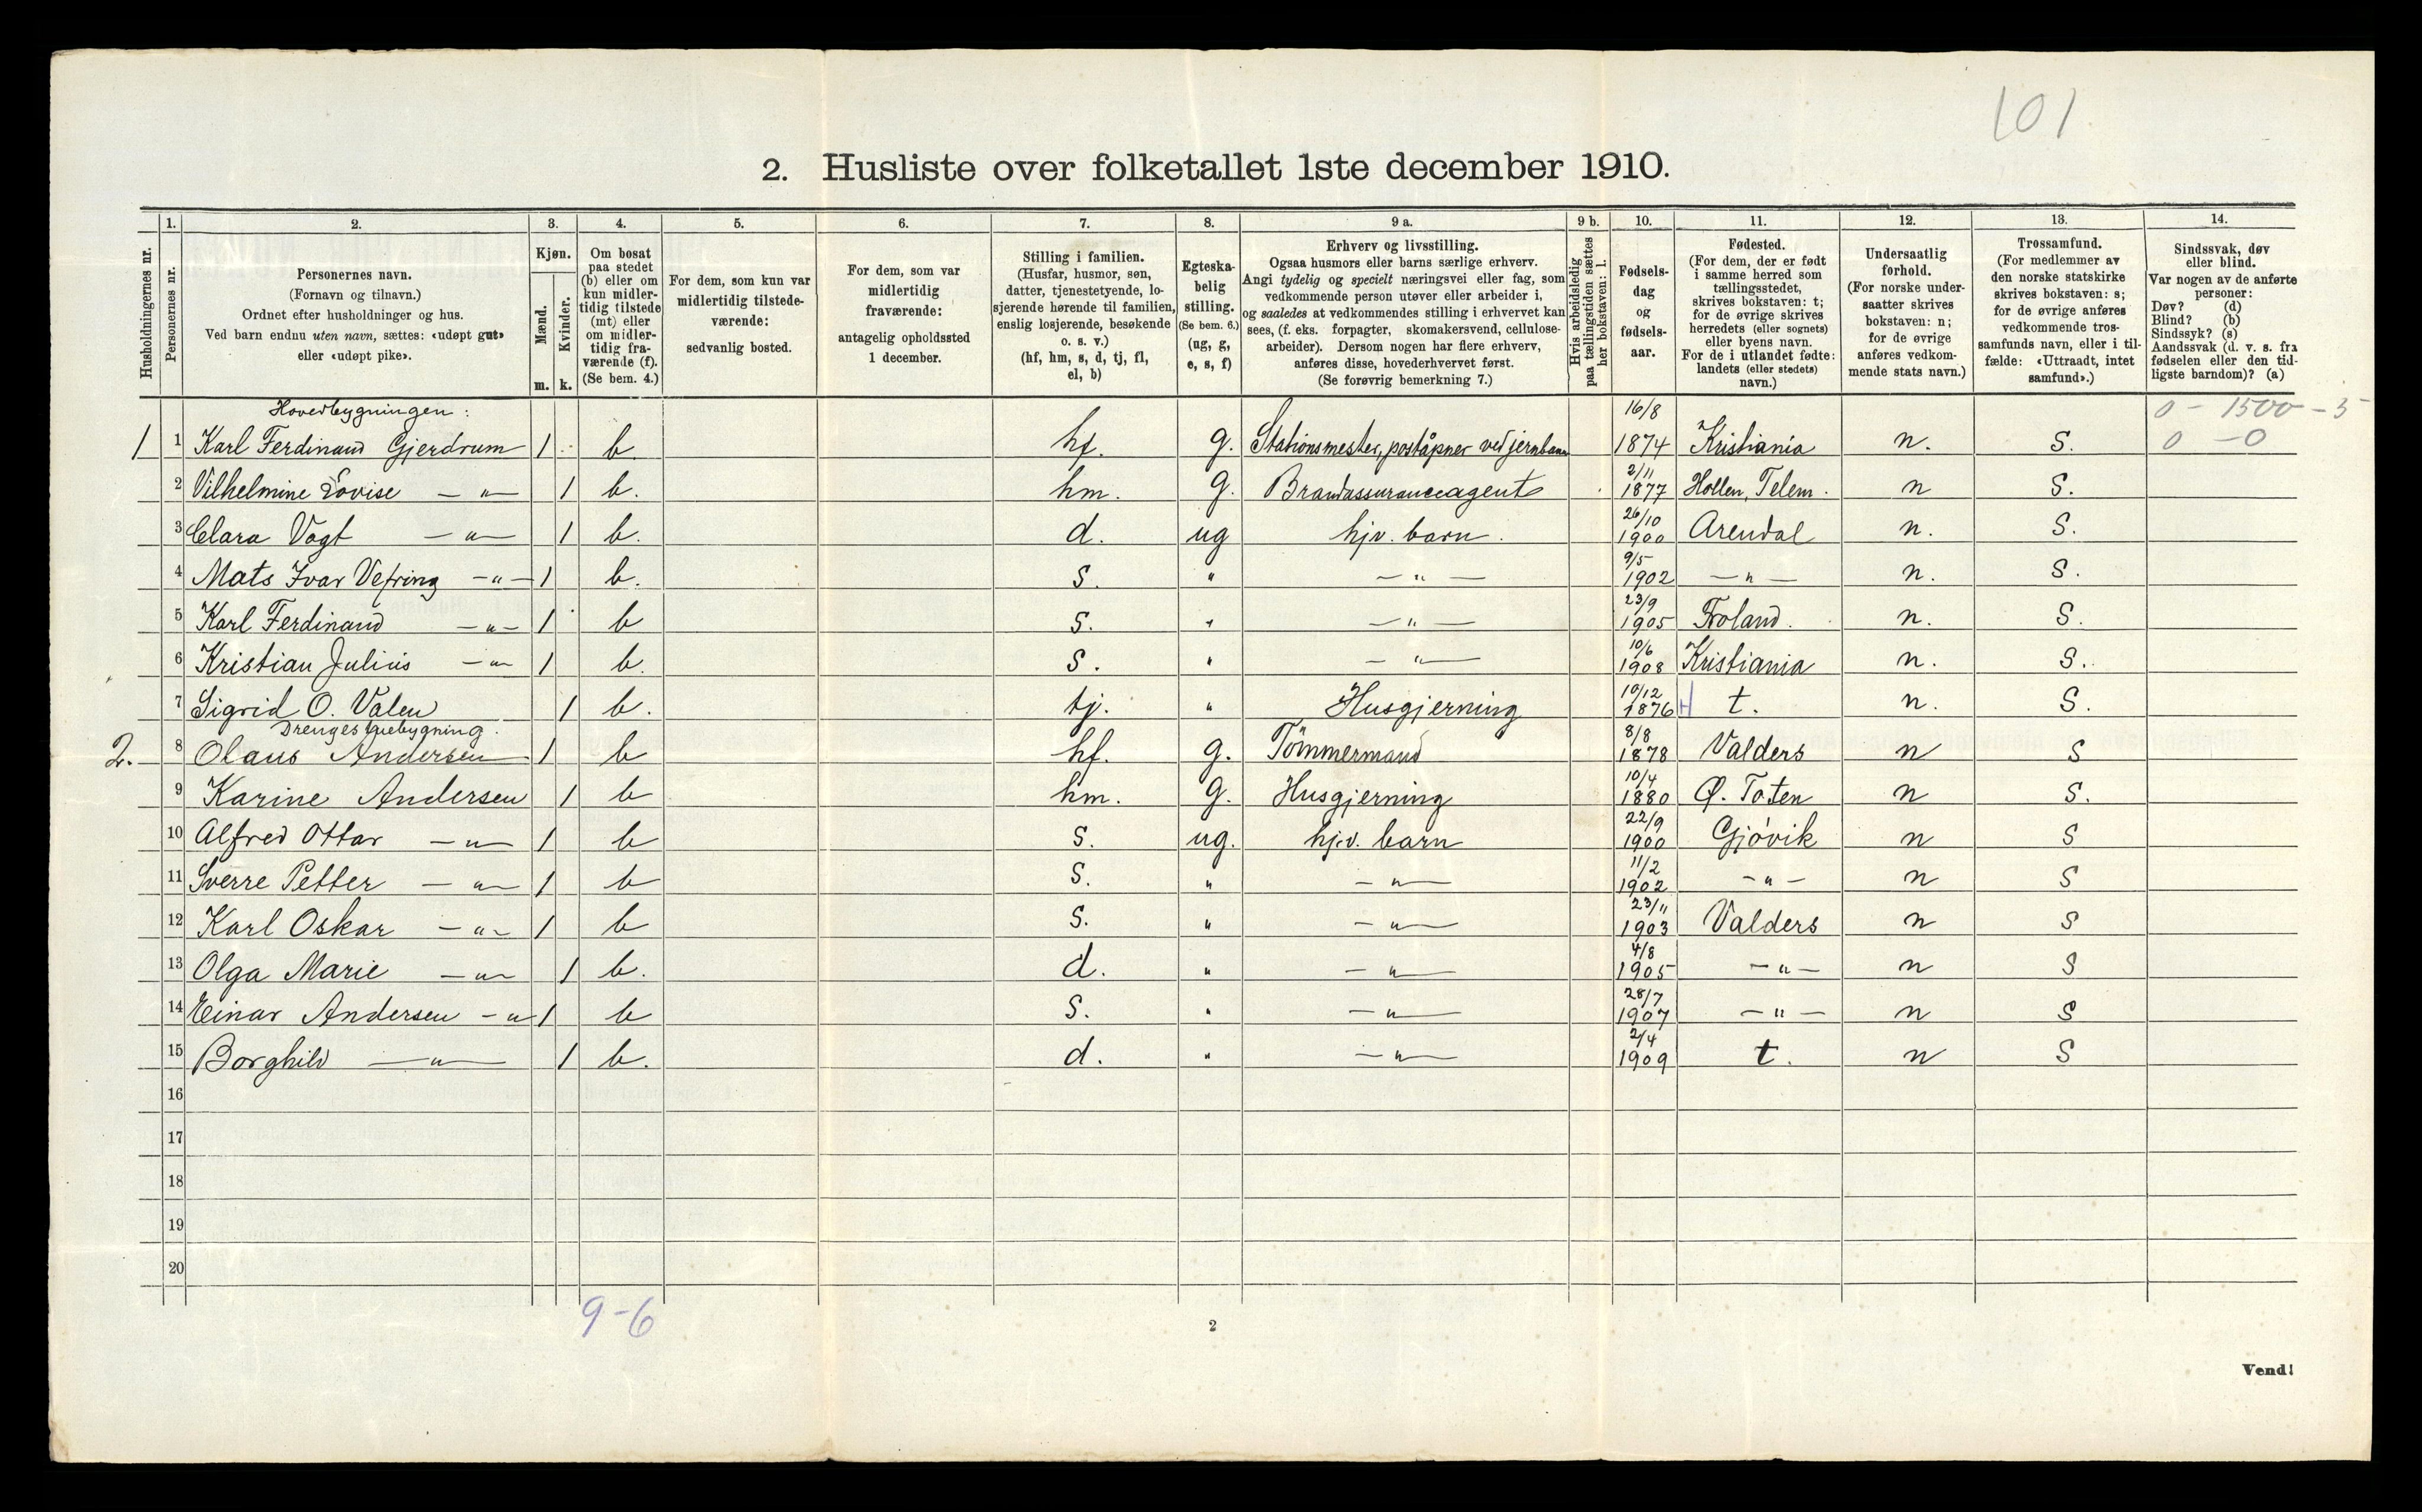 101
2. Husliste over folketallet 1ste december 1910.
Husholdningernes nr.
1.
Personernes nr.
2.
Personernes navn.
(Fornavn og tilnavn.)
Ordnet efter husholdninger og hus.
Ved barn endnu uten navn, sættes: «udøpt gut»
eller «udøpt pike».
3.
Kjøn.
Mænd.
m.
Kvinder.
k.
4.
Om bosat
paa stedet
(b) eller om
kun midler-
tidig tilstede
(mt) eller
om midler-
tidig fra-
værende (f).
(Se bem. 4.)
5.
For dem, som kun var
midlertidig tilstede-
værende:
sedvanlig bosted.
6.
For dem, som var
midlertidig
fraværende:
antagelig opholdssted
1 december.
7.
Stilling i familien.
(Husfar, husmor, søn,
datter, tjenestetyende, lo-
sjerende hørende til familien,
enslig losjerende, besøkende
o. s. v.)
(hf, hm, s, d, tj, fl,
el, b)
8.
Egteska-
belig
stilling.
(Se bem. 6.)
(ug, g,
e, s, f)
9 a.
Erhverv og livsstilling.
Ogsaa husmors eller barns særlige erhverv.
Angi tydelig og specielt næringsvei eller fag, som
vedkommende person utøver eller arbeider i,
og saaledes at vedkommendes stilling i erhvervet kan
sees, (f. eks. forpagter, skomakersvend, cellulose-
arbeider). Dersom nogen har flere erhverv,
anføres disse, hovederhvervet først.
(Se forøvrig bemerkning 7.)
9 b.
Hvis arbeidsledig
paa tællingstiden sættes
her bokstaven: l.
10.
Fødsels-
dag
og
fødsels-
aar.
11.
Fødested.
(For dem, der er født
i samme herred som
tællingsstedet,
skrives bokstaven: t;
for de øvrige skrives
herredets (eller sognets)
eller byens navn.
For de i utlandet fødte:
landets (eller stedets)
navn.)
12.
Undersaatlig
forhold.
(For norske under-
saatter skrives
bokstaven: n;
for de øvrige
anføres vedkom-
mende stats navn.)
13.
Trossamfund.
(For medlemmer av
den norske statskirke
skrives bokstaven: s;
for de øvrige anføres
vedkommende tros-
samfunds navn, eller i til-
fælde: «Uttraadt, intet
samfund».)
14.
Sindssvak, døv
eller blind.
Var nogen av de anførte
personer:
Døv? (d)
Blind? (b)
Sindssyk? (s)
Aandssvak (d. v. s. fra
fødselen eller den tid-
ligste barndom)? (a)
Hovedbygningen: 16/8 0 - 1500 - 5
1 1 Karl Ferdinand Gjerdrum 1 b. hf. g. Stationsmester, poståpner ved jernbann 1874 Kristiania n. S. 0 - 0
2 Vilhelmine Lovise — " — 1 b. hm. g. Brandassuranceagent 2/11 1877 Hollen, Telem. n S.
3 Clara Vogt — " — 1 b. d. ug hjv. barn. 26/10 1900 Arendal n. S.
4 Mats Ivar Vefring — " — 1 b. s. " — " — 9/5 1902 — " — n. S.
5 Karl Ferdinand — " — 1 b s. " — " — 23/9 1905 Froland. n. S.
6 Kristian Julius — " — 1 b. s. " — " — 10/6 1908 Kristiania n. S.
7 Sigrid O. Valen 1 b. tj. " Husgjerning 10/12 1876 t. n. S.
Drengestuebygning.
2. 8 Olaus Andersen 1 b hf. g. Tömmermand 8/8 1878 Valders n S
9 Karine Andersen 1 b hm. g. Husgjerning 10/4 1880 Ø. Toten n S.
10 Alfred Ottar — " — 1 b s. ug. hjv. barn 22/9 1900 Gjövik n S
11 Sverre Petter — " — 1 b s. " — " — 11/2 1902 — " — n S
12 Karl Oskar — " — 1 b s. " — " — 23/11 1903 Valders n S
13 Olga Marie — " — 1 b. d. " — " — 4/8 1905 — " — n S
14 Einar Andersen — " 1 b s. " — " — 28/7 1907 — " — n S
15 Borghild — " — 1 b. d. " — " — 2/4 1909 t. n S
16
17
18
19
20
9-6
2
Vend!